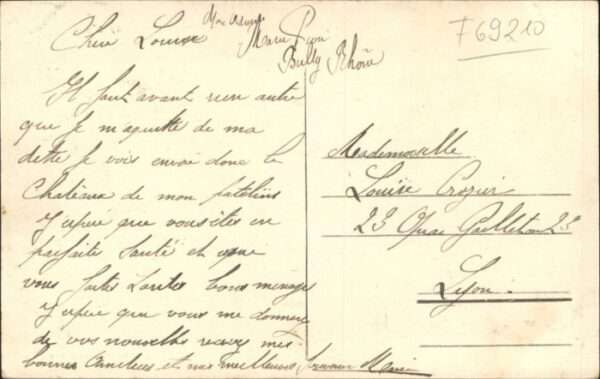 Chère Louise
Marie
Bully Rhône
F69210
Il faut avant rien autre
que je m'aquitte de ma
dette je vois envoi donc le
Château de mon
J'espère que vous êtes en
parfaite Santé et que
vous faites toutes bons ménages
J'espère que vous me donnerez
de vos nouvelles recevez mes
bonnes Amitiées et mes meilleurs Marie
Mademoiselle
Louise Crozier
23 Quai Gailleton 23
Lyon.